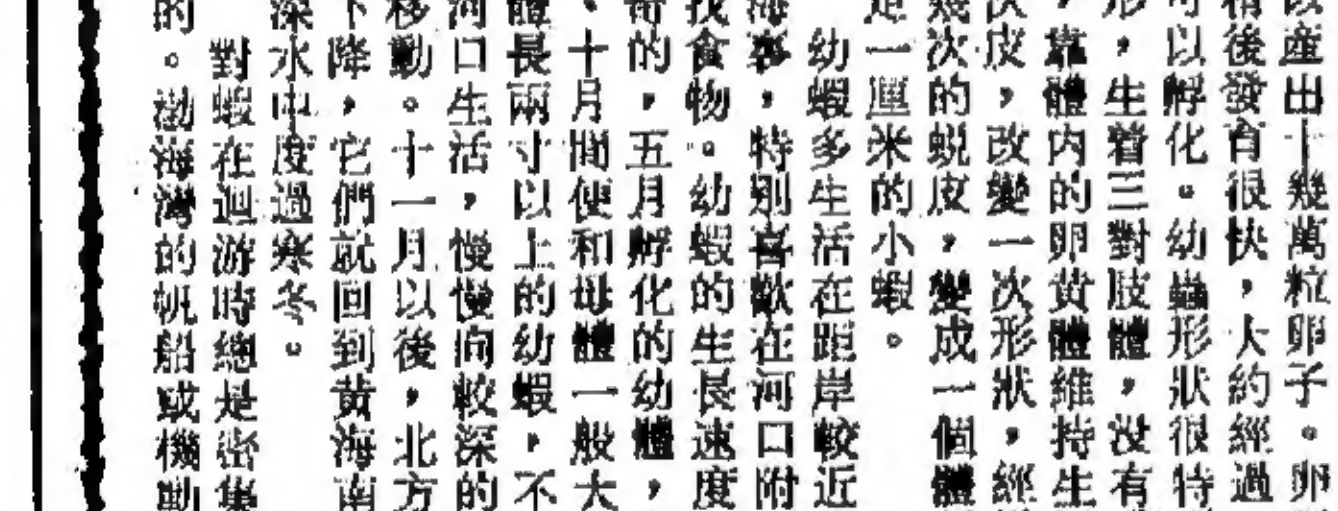 產出十幾萬粒卵子。卵
後發育很快，大約經過
以孵化。幼蟲形狀很特
，生着三對肢體，沒有
，靠體內的卵黄體維持生
皮，改變一次形狀，經
幾次的蜕皮，變成一個體
一厘米的小蝦。
幼蝦多生活在距岸較近
海事，特别喜歡在河口附
找食物。幼蝦的生長速度
的，五月孵化的幼體，
、十月間便和母體一般大
體長兩寸以上的幼蝦，不
河口生活，慢慢向較深的
移動。十一月以後，北方
下降，它們就回到黄海南
深水中度過寒冬。
對蝦在迴游時總是密集
的。渤海灣的帆船或機動